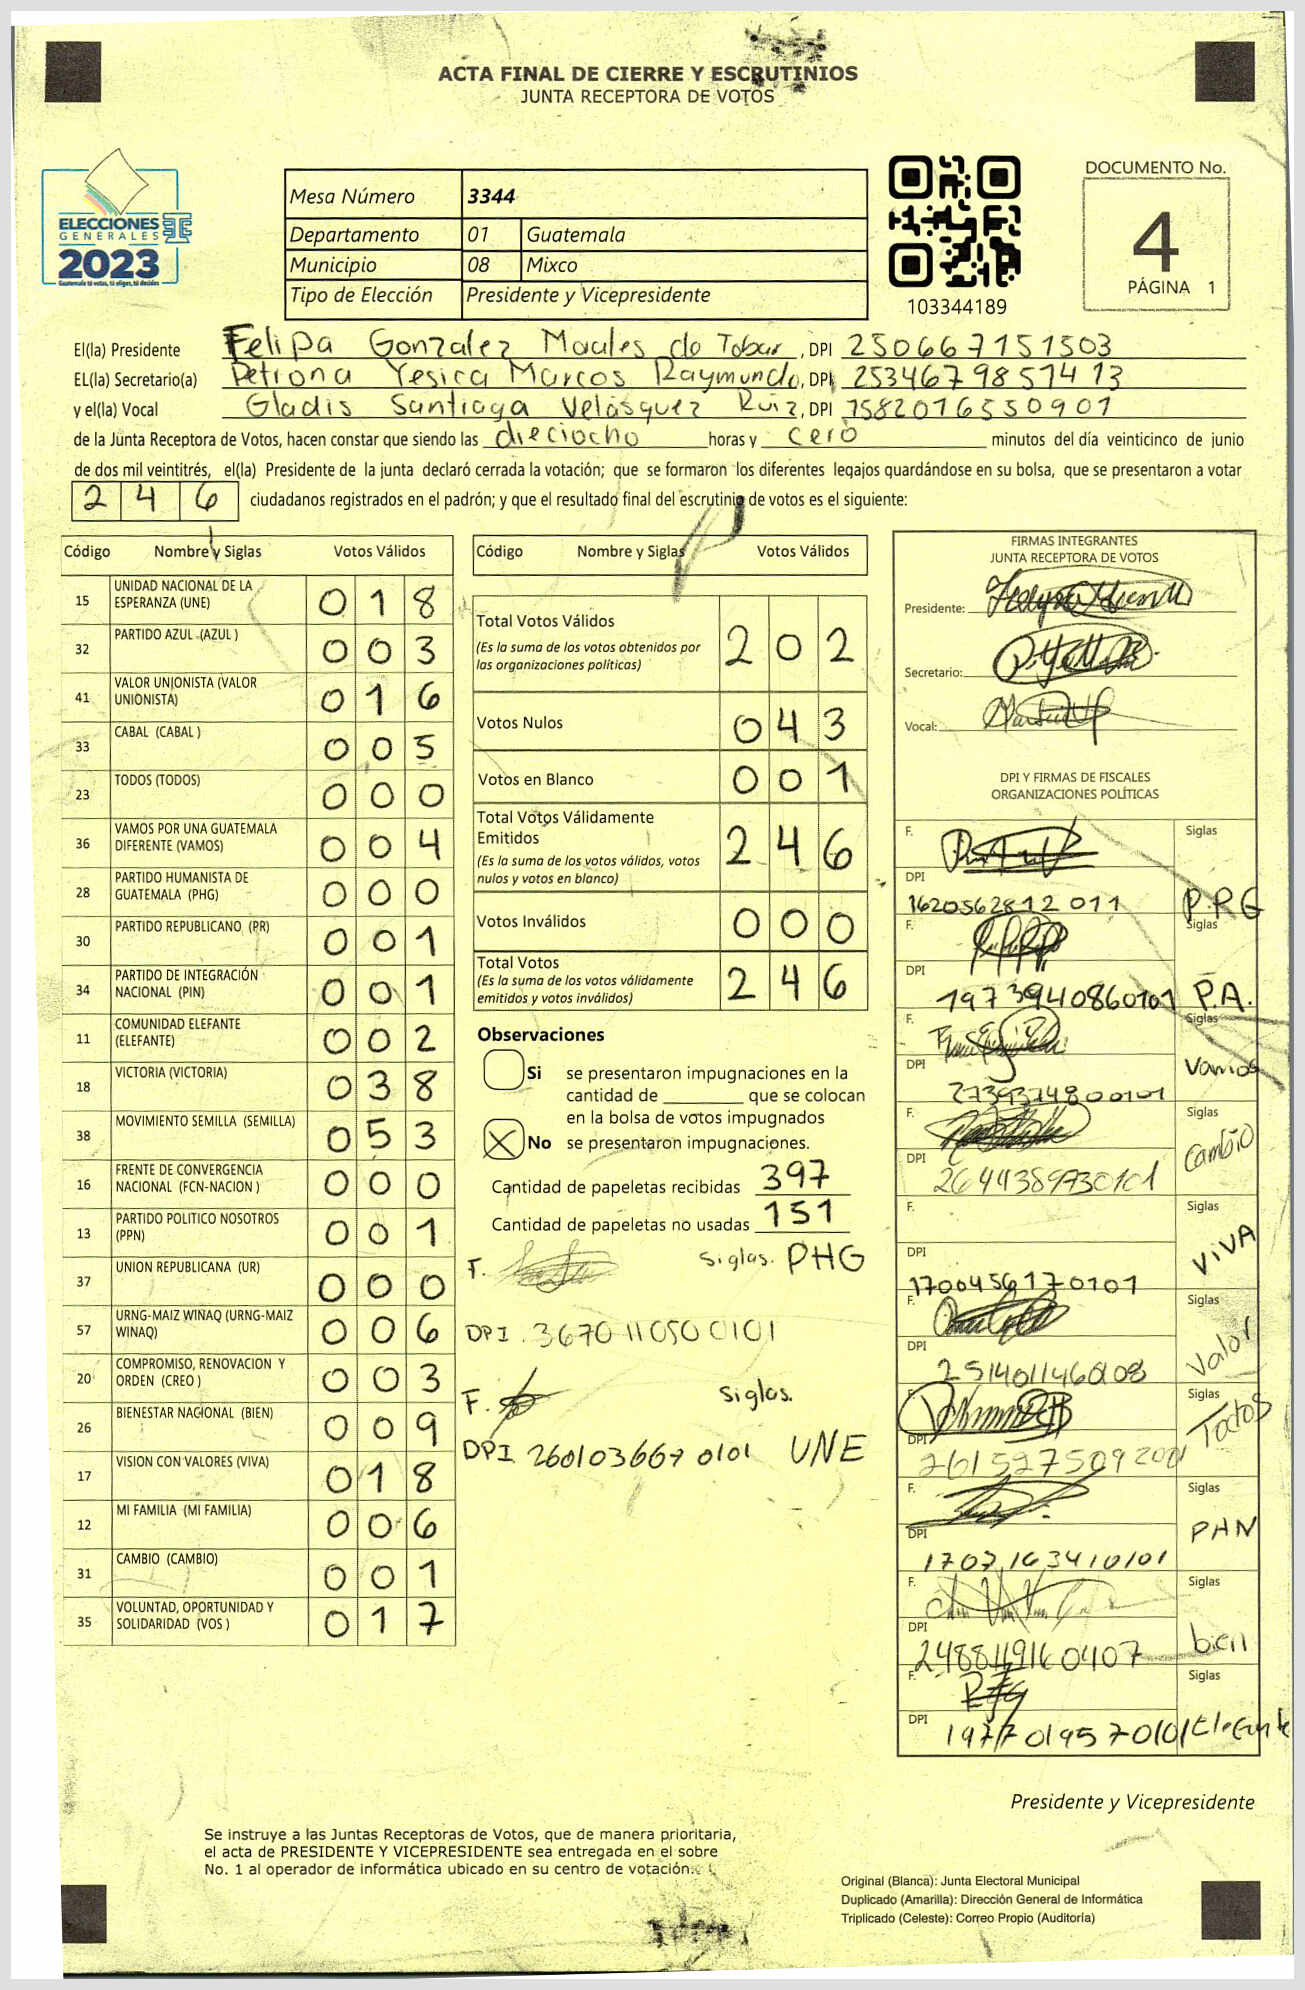 ACTA FINAL DE CIERRE Y ESCRUTINIOS
JUNTA RECEPTORA DE VOTOS
ELECCIONES
GENERALES
2023
Guatemala tú votas, tú eliges, tú decides
TSE
Mesa Número 3344
Departamento 01 Guatemala
Municipio 08 Mixco
Tipo de Elección Presidente y Vicepresidente
103344189
DOCUMENTO No.
4
PÁGINA 1
El(la) Presidente Felipa Gonzalez Morales de Tobar, DPI 250667151503
EL(la) Secretario(a) Petrona Yesica Marcos Raymundo, DPI 2534679851413
y el(la) Vocal Gladis Santiaga Velásquez Ruiz, DPI 1582016550901
de la Junta Receptora de Votos, hacen constar que siendo las dieciocho horas y cero minutos del día veinticinco de junio
de dos mil veintitrés, el(la) Presidente de la junta declaró cerrada la votación; que se formaron los diferentes legajos quardándose en su bolsa, que se presentaron a votar
246 ciudadanos registrados en el padrón; y que el resultado final del escrutinio de votos es el siguiente:
Código Nombre y Siglas Votos Válidos
15 UNIDAD NACIONAL DE LA ESPERANZA (UNE) 018
32 PARTIDO AZUL (AZUL ) 003
41 VALOR UNIONISTA (VALOR UNIONISTA) 016
33 CABAL (CABAL ) 005
23 TODOS (TODOS) 000
36 VAMOS POR UNA GUATEMALA DIFERENTE (VAMOS) 004
28 PARTIDO HUMANISTA DE GUATEMALA (PHG) 000
30 PARTIDO REPUBLICANO (PR) 001
34 PARTIDO DE INTEGRACIÓN NACIONAL (PIN) 001
11 COMUNIDAD ELEFANTE (ELEFANTE) 002
18 VICTORIA (VICTORIA) 038
38 MOVIMIENTO SEMILLA (SEMILLA) 053
16 FRENTE DE CONVERGENCIA NACIONAL (FCN-NACION ) 000
13 PARTIDO POLITICO NOSOTROS (PPN) 001
37 UNION REPUBLICANA (UR) 000
57 URNG-MAIZ WINAQ (URNG-MAIZ WINAQ) 006
20 COMPROMISO, RENOVACION Y ORDEN (CREO ) 003
26 BIENESTAR NACIONAL (BIEN) 009
17 VISION CON VALORES (VIVA) 018
12 MI FAMILIA (MI FAMILIA) 006
31 CAMBIO (CAMBIO) 001
35 VOLUNTAD, OPORTUNIDAD Y SOLIDARIDAD (VOS ) 017
Código Nombre y Siglas Votos Válidos
Total Votos Válidos 202
(Es la suma de los votos obtenidos por
las organizaciones políticas)
Votos Nulos 043
Votos en Blanco 001
Total Votos Válidamente
Emitidos 246
(Es la suma de los votos válidos, votos
nulos y votos en blanco)
Votos Inválidos 000
Total Votos 246
(Es la suma de los votos válidamente
emitidos y votos inválidos)
Observaciones
Si se presentaron impugnaciones en la
cantidad de ________ que se colocan
en la bolsa de votos impugnados
X No se presentaron impugnaciones.
Cantidad de papeletas recibidas 397
Cantidad de papeletas no usadas 151
F. Siglas. PHG
DPI. 3670110500101
F. Siglas.
DPI 2601036670101 UNE
FIRMAS INTEGRANTES
JUNTA RECEPTORA DE VOTOS
Presidente:
Secretario:
Vocal:
DPI Y FIRMAS DE FISCALES
ORGANIZACIONES POLÍTICAS
F. Siglas
DPI
1620562812011 P.P.G
F. Siglas
DPI
1973940860101 P.A.
F. Siglas
DPI Vamos
2739374800101
F. Siglas
DPI Cambio
2644389730101
F. Siglas
DPI VIVA
1700456170101
F. Siglas
DPI Valor
2514011460108
F. Siglas
DPI Todos
F. Siglas
DPI PHN
1707163410101
F. Siglas
DPI bien
2488119160407
F. Siglas
DPI
1977019570101 Elefante
Presidente y Vicepresidente
Se instruye a las Juntas Receptoras de Votos, que de manera prioritaria,
el acta de PRESIDENTE Y VICEPRESIDENTE sea entregada en el sobre
No. 1 al operador de informática ubicado en su centro de votación.
Original (Blanca): Junta Electoral Municipal
Duplicado (Amarilla): Dirección General de Informática
Triplicado (Celeste): Correo Propio (Auditoría)